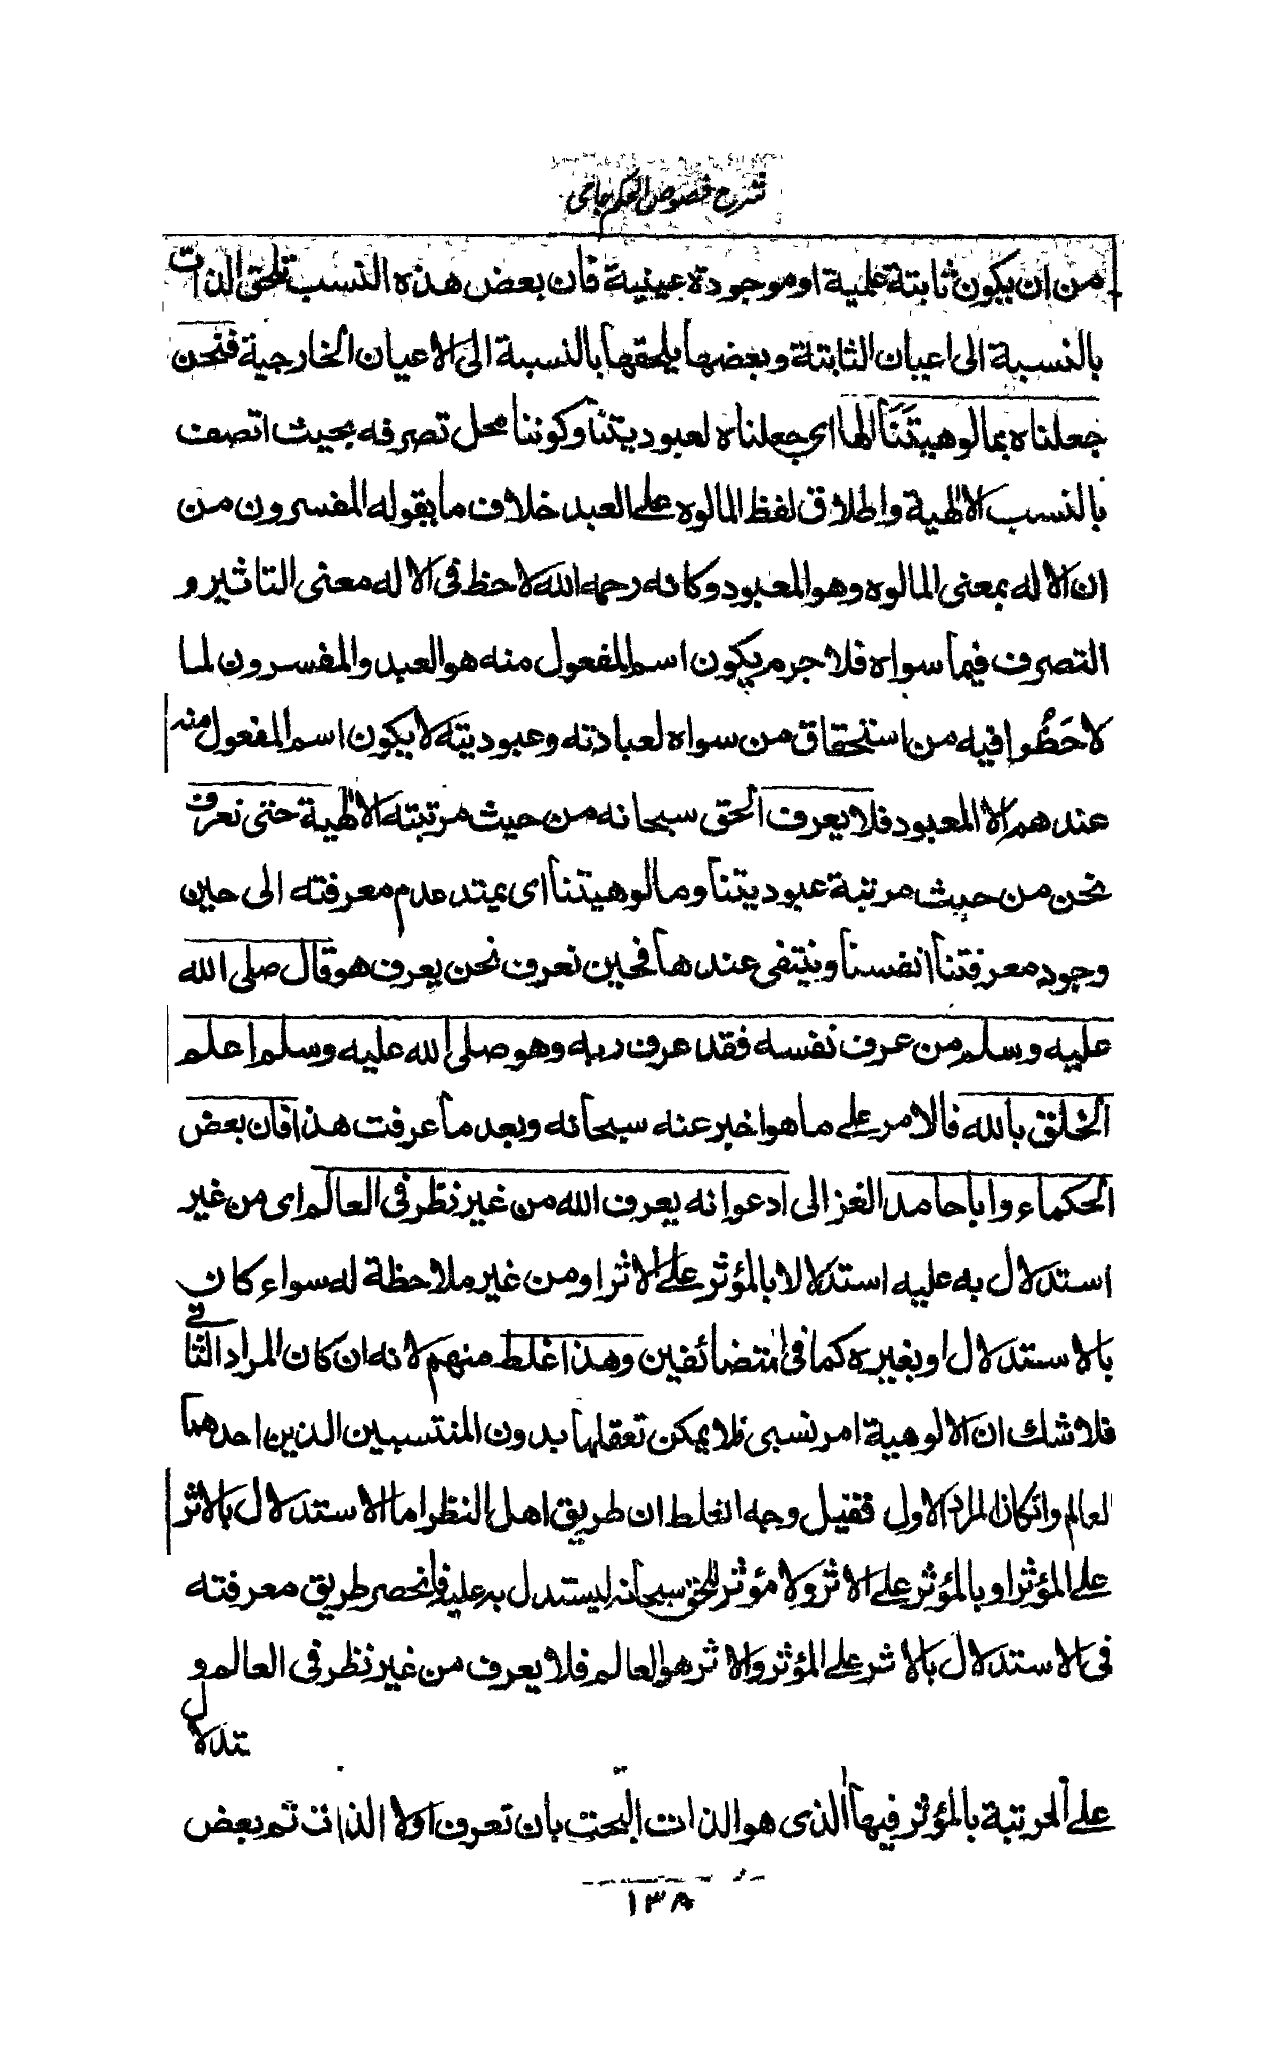 شرح فصوص الحكم جامى
من ان يكون ثابتة علمية او موجودة عينية فان بعض هذه النسب تلحق الذات
بالنسبة الى اعيان الثابتة وبعضها يلحقها بالنسبة الى الاعيان الخارجية فنحن
جعلناه بمالوهيتنا الها اى جعلناه لعبوديتنا وكوننا محل تصرفه بحيث اتصف
بالنسب الالهية واطلاق لفظ المالوه على العبد خلاف ما يقوله المفسرون من
ان الاله بمعنى المالوه وهو المعبود وكانه رحمه الله لاحظ فى الاله معنى التاثير و
التصرف فيما سواه فلا جرم يكون اسم المفعول منه هو العبد والمفسرون لما
لاحَظُوا فيه من استحقاق من سواه لعبادته وعبوديته لا يكون اسم المفعول منه
عندهم الا المعبود فلا يعرف الحق سبحانه من حيث مرتبته الالهية حتى نعرف
نحن من حيث مرتبة عبوديتنا ومالوهيتنا اى يمتد عدم معرفته الى حين
وجود معرفتنا انفسنا وينتفى عندها فحين نعرف نحن يعرف هو قال صلى الله
عليه وسلم من عرف نفسه فقد عرف ربه وهو صلى الله عليه وسلم اعلم
الخلق بالله فالامر على ما هو اخبر عنه سبحانه وبعد ما عرفت هذا فان بعض
الحكماء وابا حامد الغزالى ادعوا انه يعرف الله من غير نظر فى العالم اى من غير
استدلال به عليه استدلالا بالمؤثر على الاثر او من غير ملاحظة له سواء كان
بالاستدلال او بغيره كما فى المتضائفين وهذا غلط منهم لانه ان كان المراد الثانى
فلا شك ان الالوهية امر نسبى فلا يمكن تعقلها بدون المنتسبين الذين احدهما
لعالم وان كان المراد الاول فقيل وجه الغلط ان طريق اهل النظر اما الاستدلال بالاثر
على المؤثر او بالمؤثر على الاثر ولا مؤثر للحق سبحانه ليستدل به عليه فانحصر طريق معرفته
فى الاستدلال بالاثر على المؤثر والاثر هو العالم فلا يعرف من غير نظر فى العالم و
تدلال
على المرتبة بالمؤثر فيها الذى هو الذات البحت بان تعرف اولا الذات ثم بعض
١٣٨